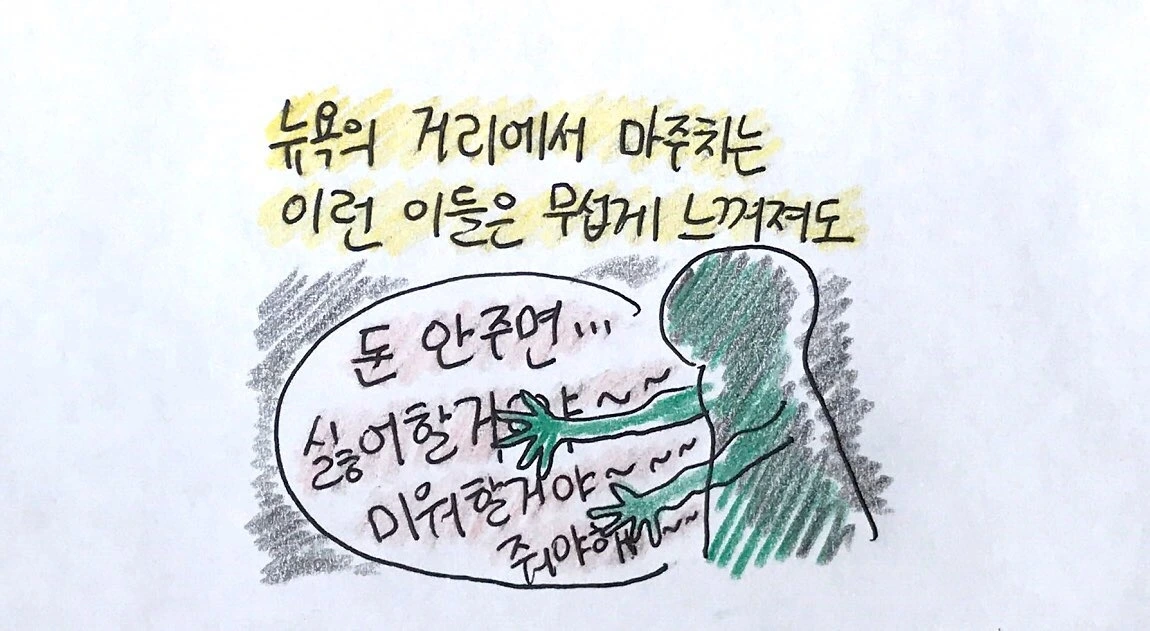 뉴욕의 거리에서 마주치는
이런 이들은 무섭게 느껴져도
돈 안주면...
싫어할거야~~
미워할거야~~~
줘야해~~